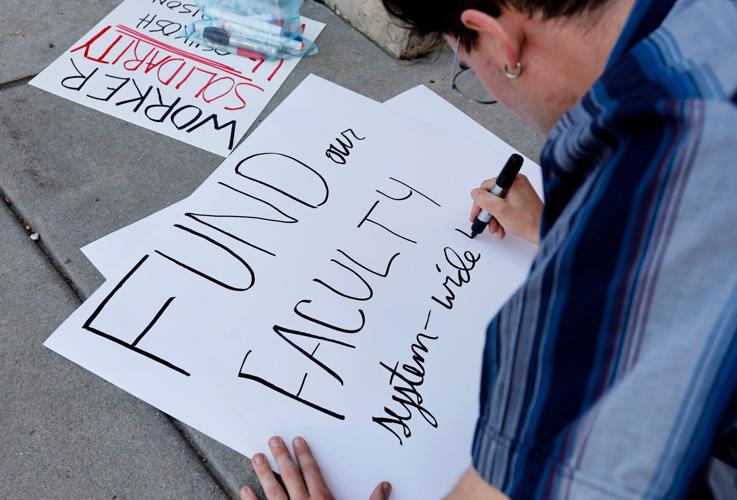 FUND our
FACULTY
system-wide
WORKER
SOLIDARITY
OSHKOSH